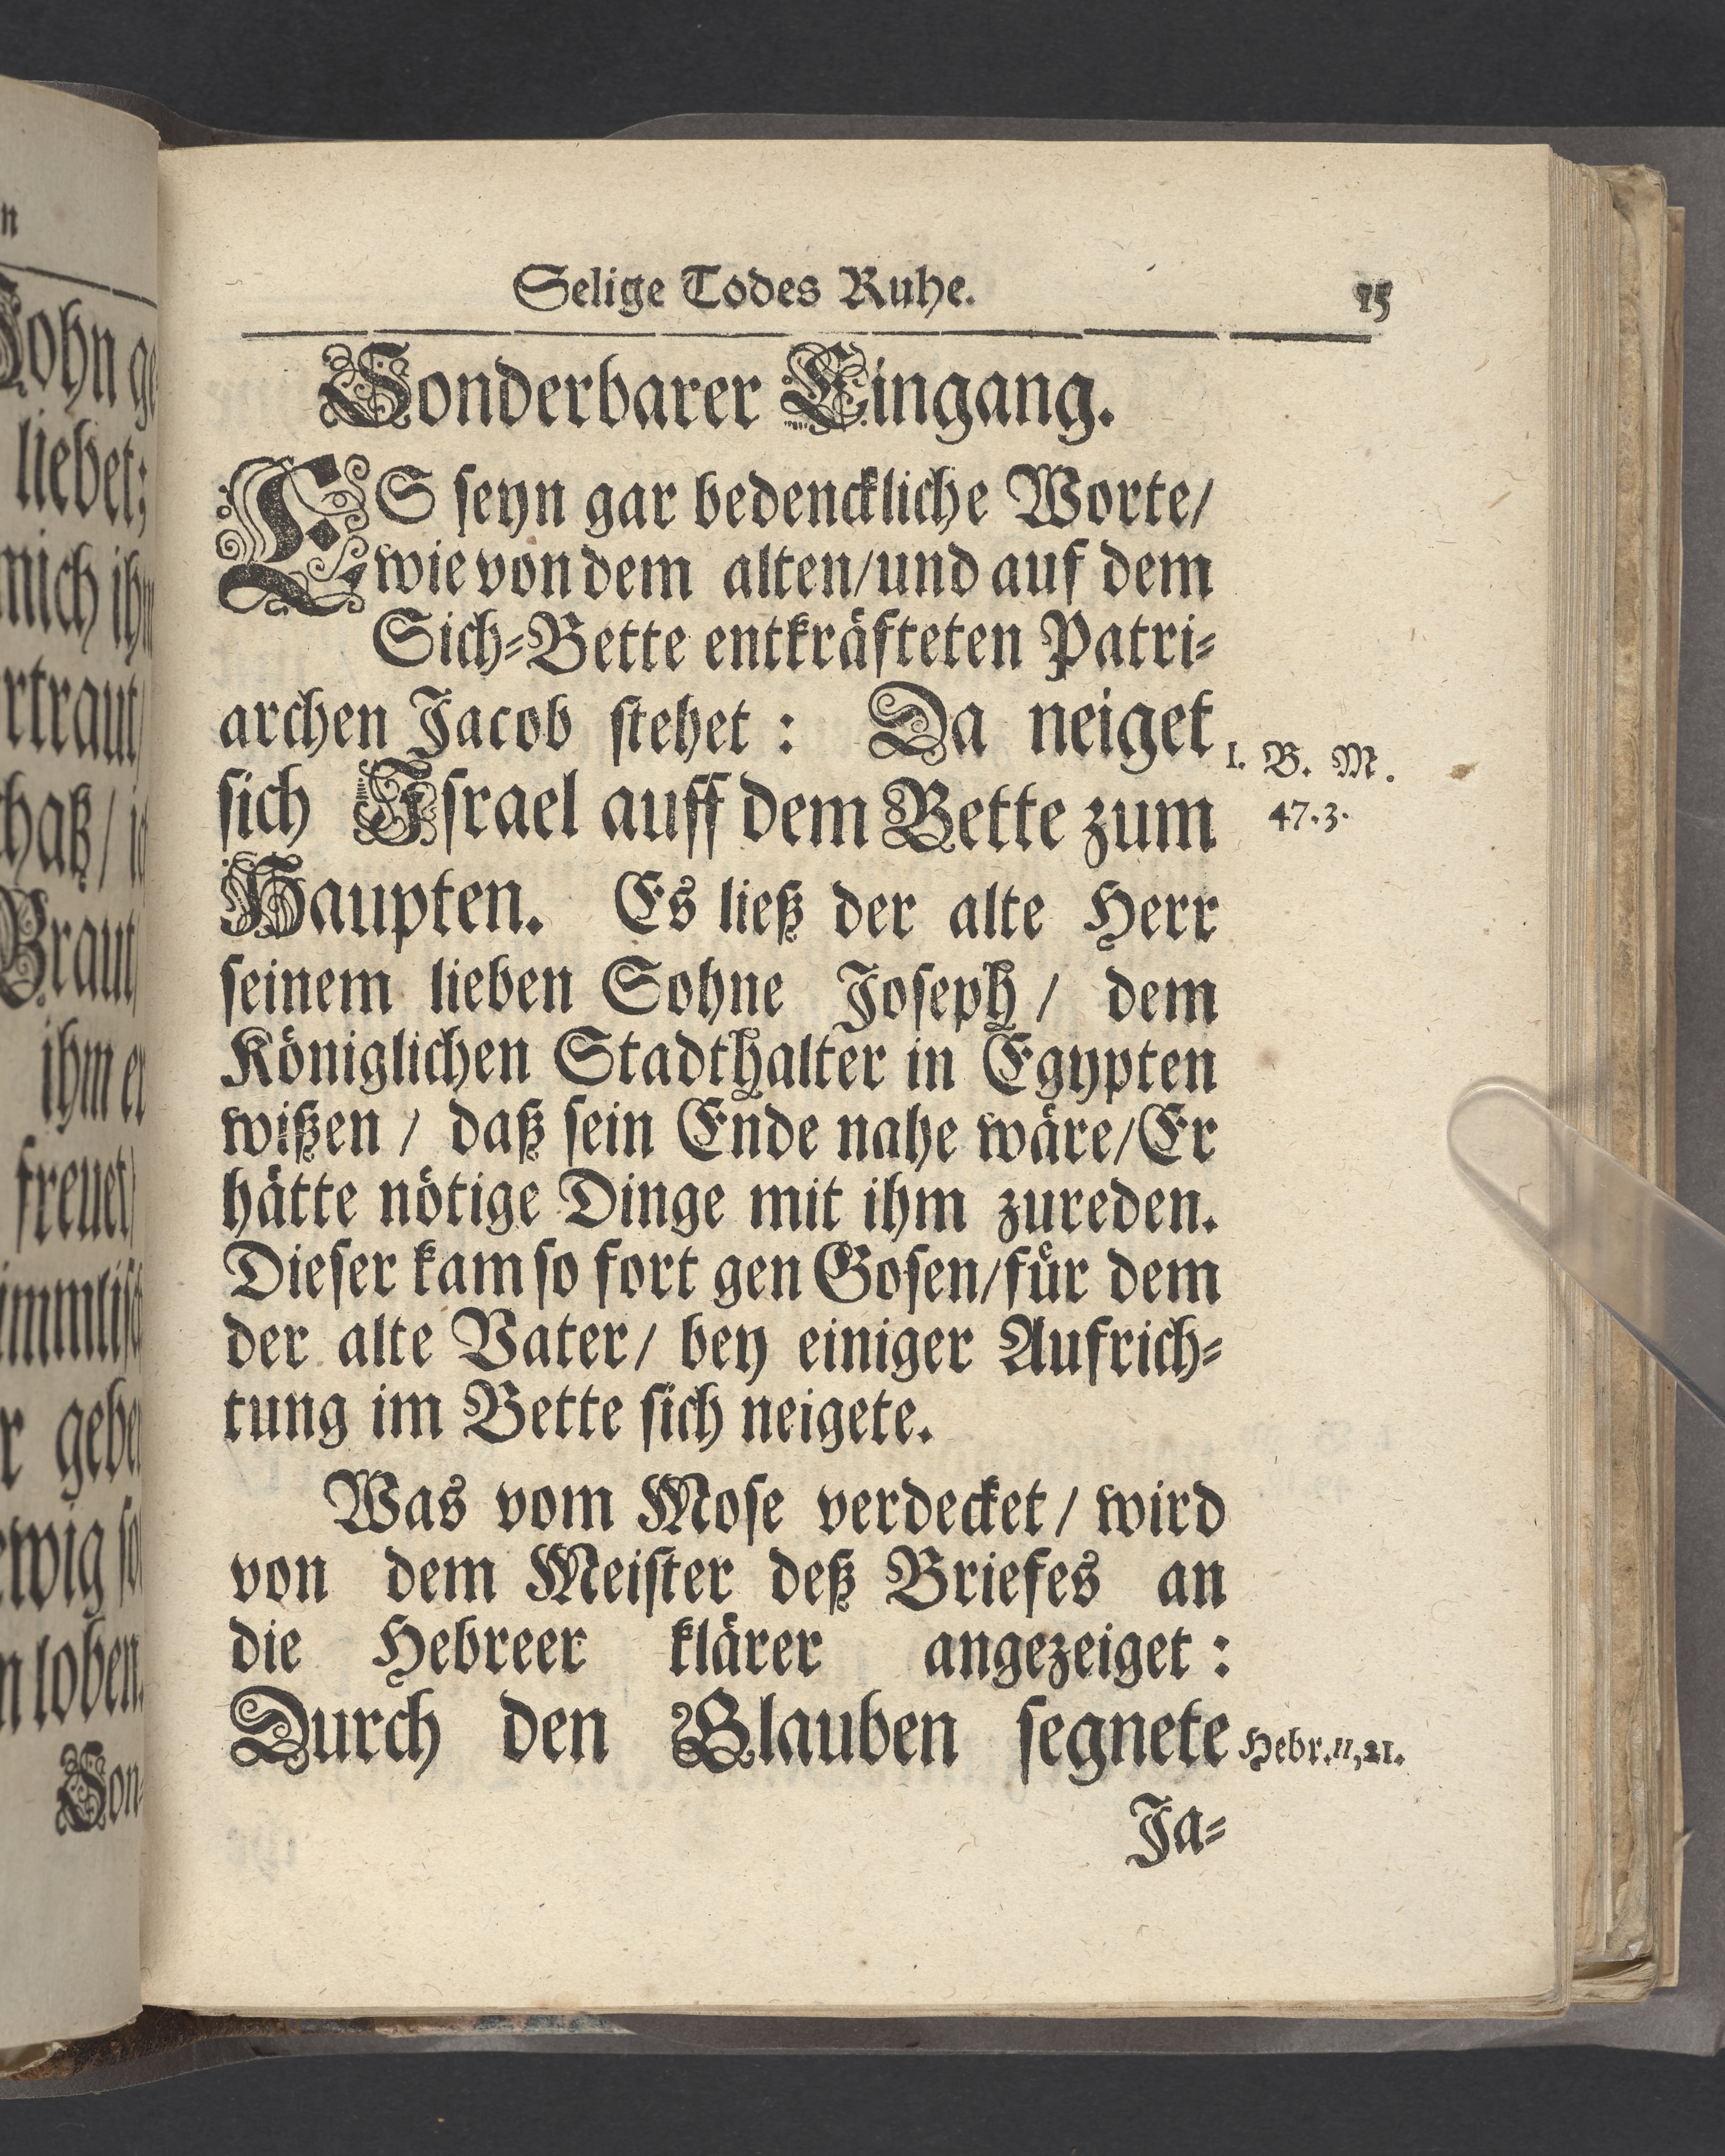 Selige Todes Ruhe. 15
Sonderbarer Eingang.
ES seyn gar bedenckliche Worte/
wie von dem alten/und auf dem
Sich-Bette entkräfteten Patri-
archen Jacob stehet : Da neiget
1. B. M.
sich Israel auff dem Bette zum
47.3.
Haupten. Es ließ der alte Herr
seinem lieben Sohne Joseph / dem
Königlichen Stadthalter in Egypten
wißen / daß sein Ende nahe wäre/Er
hätte nötige Dinge mit ihm zureden.
Dieser kam so fort gen Gosen/für dem
der alte Vater/ bey einiger Aufrich-
tung im Bette sich neigete.
Was vom Mose verdecket / wird
von dem Meister deß Briefes an
die Hebreer klärer angezeiget :
Durch den Glauben segnete
Hebr.11,21.
Ja-
liebet;
Son-